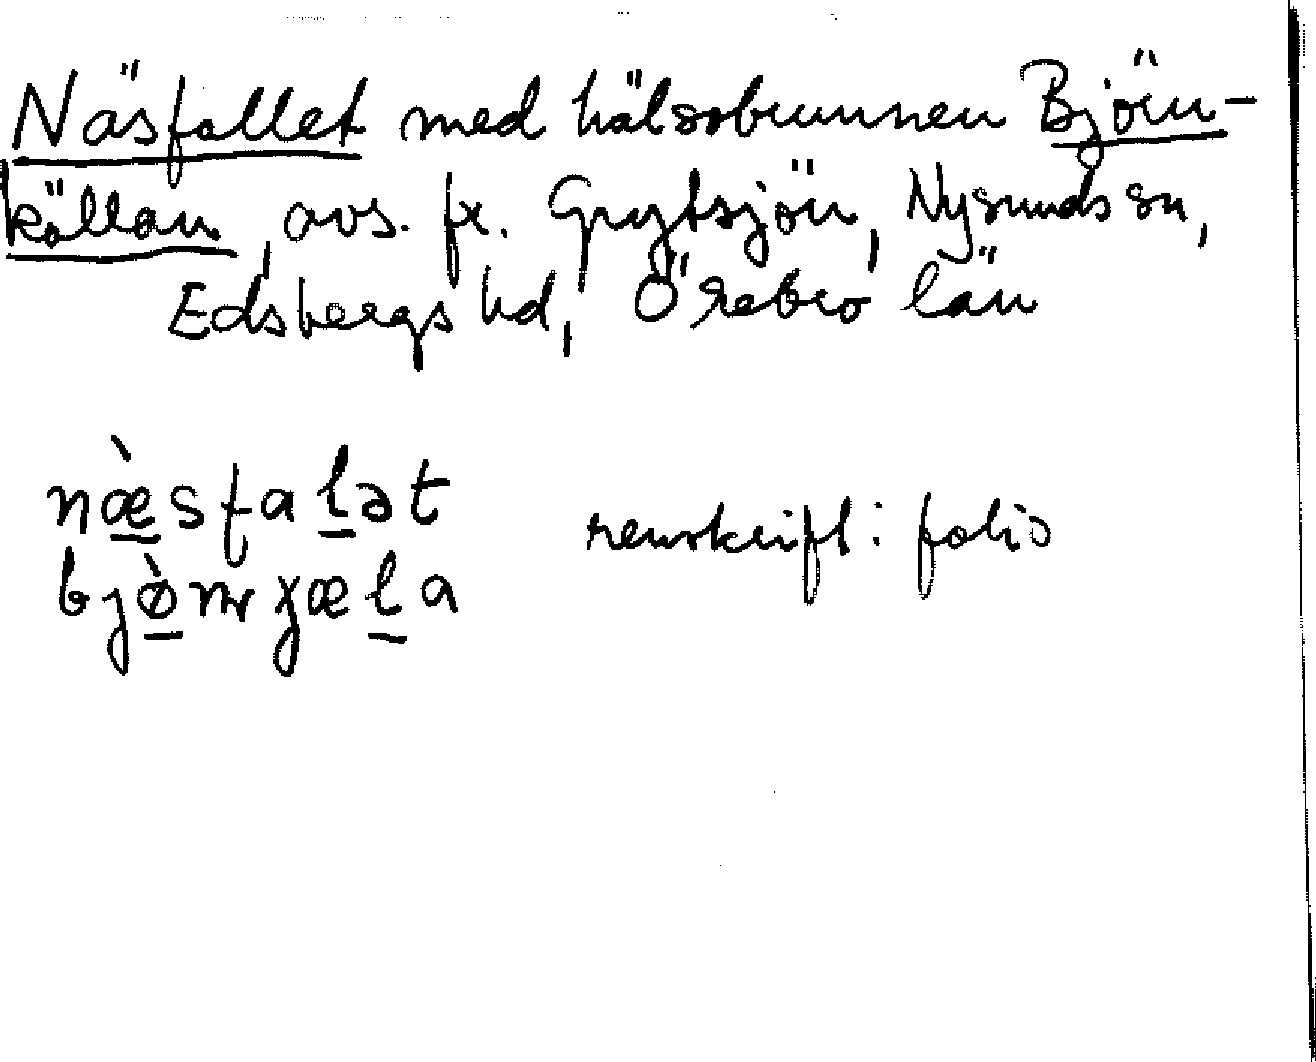 Näsfallet med hälsobrunnen Björn-
källan, avs. fr. Grytsjön, Nysunds sn,
Edsbergs hd, Örebro län
næ̀sfalət
renskrift: folio